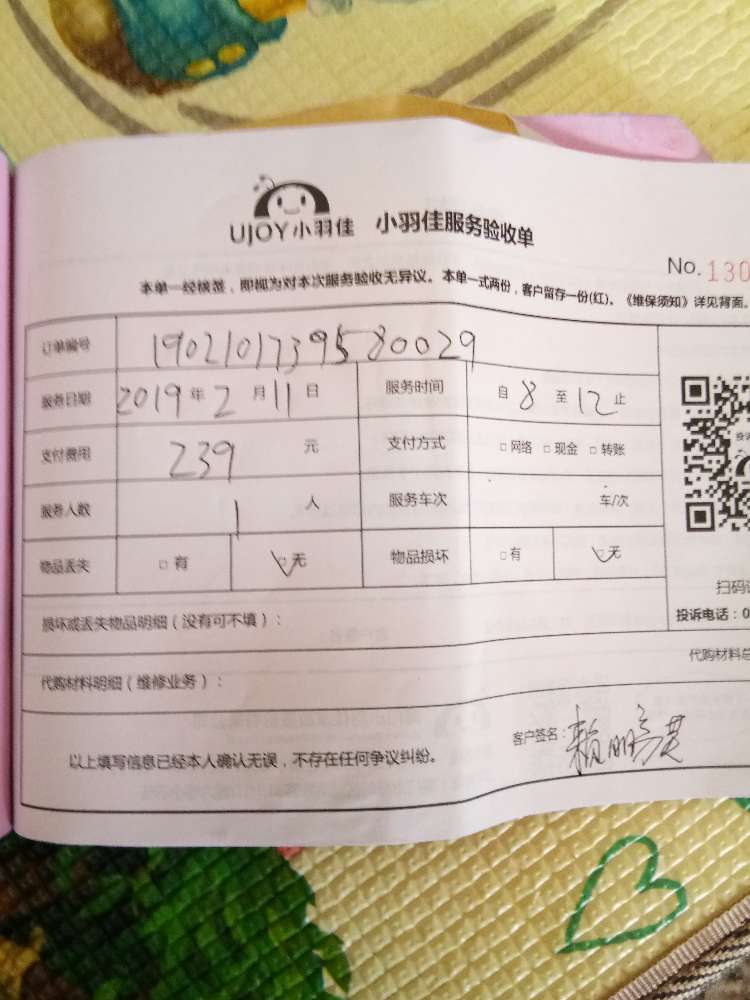 UJOY小羽佳 小羽佳服务验收单
No. 130
本单一经核签，即视为对本次服务验收无异议。本单一式两份，客户留存一份(红)。《维保须知》详见背面。
订单编号 1902101739580029
服务日期 2019年2月11日 服务时间 自8至12止
支付费用 239元 支付方式 □网络 □现金 □转账
服务人数 1人 服务车次 车/次
物品丢失 □有 ☑无 物品损坏 □有 ☑无
扫码
投诉电话：0
损坏或丢失物品明细（没有可不填）：
代购材料总
代购材料明细（维修业务）：
以上填写信息已经本人确认无误，不存在任何争议纠纷。
客户签名：赖